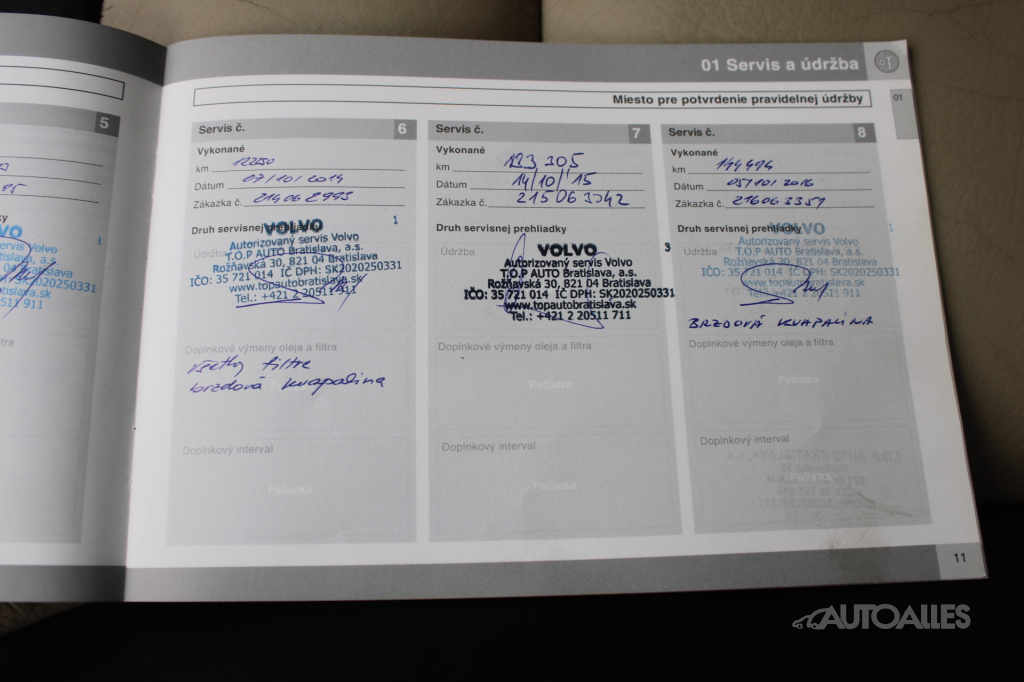 01 Servis a údržba
Miesto pre potvrdenie pravidelnej údržby
01
5
Servis Volvo
Bratislava, a.s.
04 Bratislava
SK2020250331
ava.sk
911
1
Servis č. 6
Vykonané
km
Dátum 07/10/2014
Zákazka č. 214 06 2995
Druh servisnej prehliadky
Údržba
VOLVO 1
Autorizovaný servis Volvo
T.O.P AUTO Bratislava, a.s.
Rožňavská 30, 821 04 Bratislava
IČO: 35 721 014 IČ DPH: SK2020250331
www.topautobratislava.sk
Tel.: +421 2 20511 911
Doplnkové výmeny oleja a filtra
všetky filtre
brzdová kvapalina
Pečiatka
Doplnkový interval
Pečiatka
Servis č. 7
Vykonané
km 133 205
Dátum 14/10/'15
Zákazka č. 215 06 3042
Druh servisnej prehliadky
Údržba
VOLVO 3
Autorizovaný servis Volvo
T.O.P AUTO Bratislava, a.s.
Rožňavská 30, 821 04 Bratislava
IČO: 35 721 014 IČ DPH: SK2020250331
www.topautobratislava.sk
Tel.: +421 2 20511 711
Doplnkové výmeny oleja a filtra
Pečiatka
Doplnkový interval
Pečiatka
Servis č. 8
Vykonané
km 144494
Dátum 05/10/2016
Zákazka č. 216 06 3351
Druh servisnej prehliadky
Údržba
VOLVO 1
Autorizovaný servis Volvo
T.O.P AUTO Bratislava, a.s.
Rožňavská 30, 821 04 Bratislava
IČO: 35 721 014 IČ DPH: SK2020250331
www.topautobratislava.sk
Tel.: +421 2 20511 911
BRZDOVÁ KVAPALINA
Doplnkové výmeny oleja a filtra
Pečiatka
Doplnkový interval
Pečiatka
11
AUTOALLES